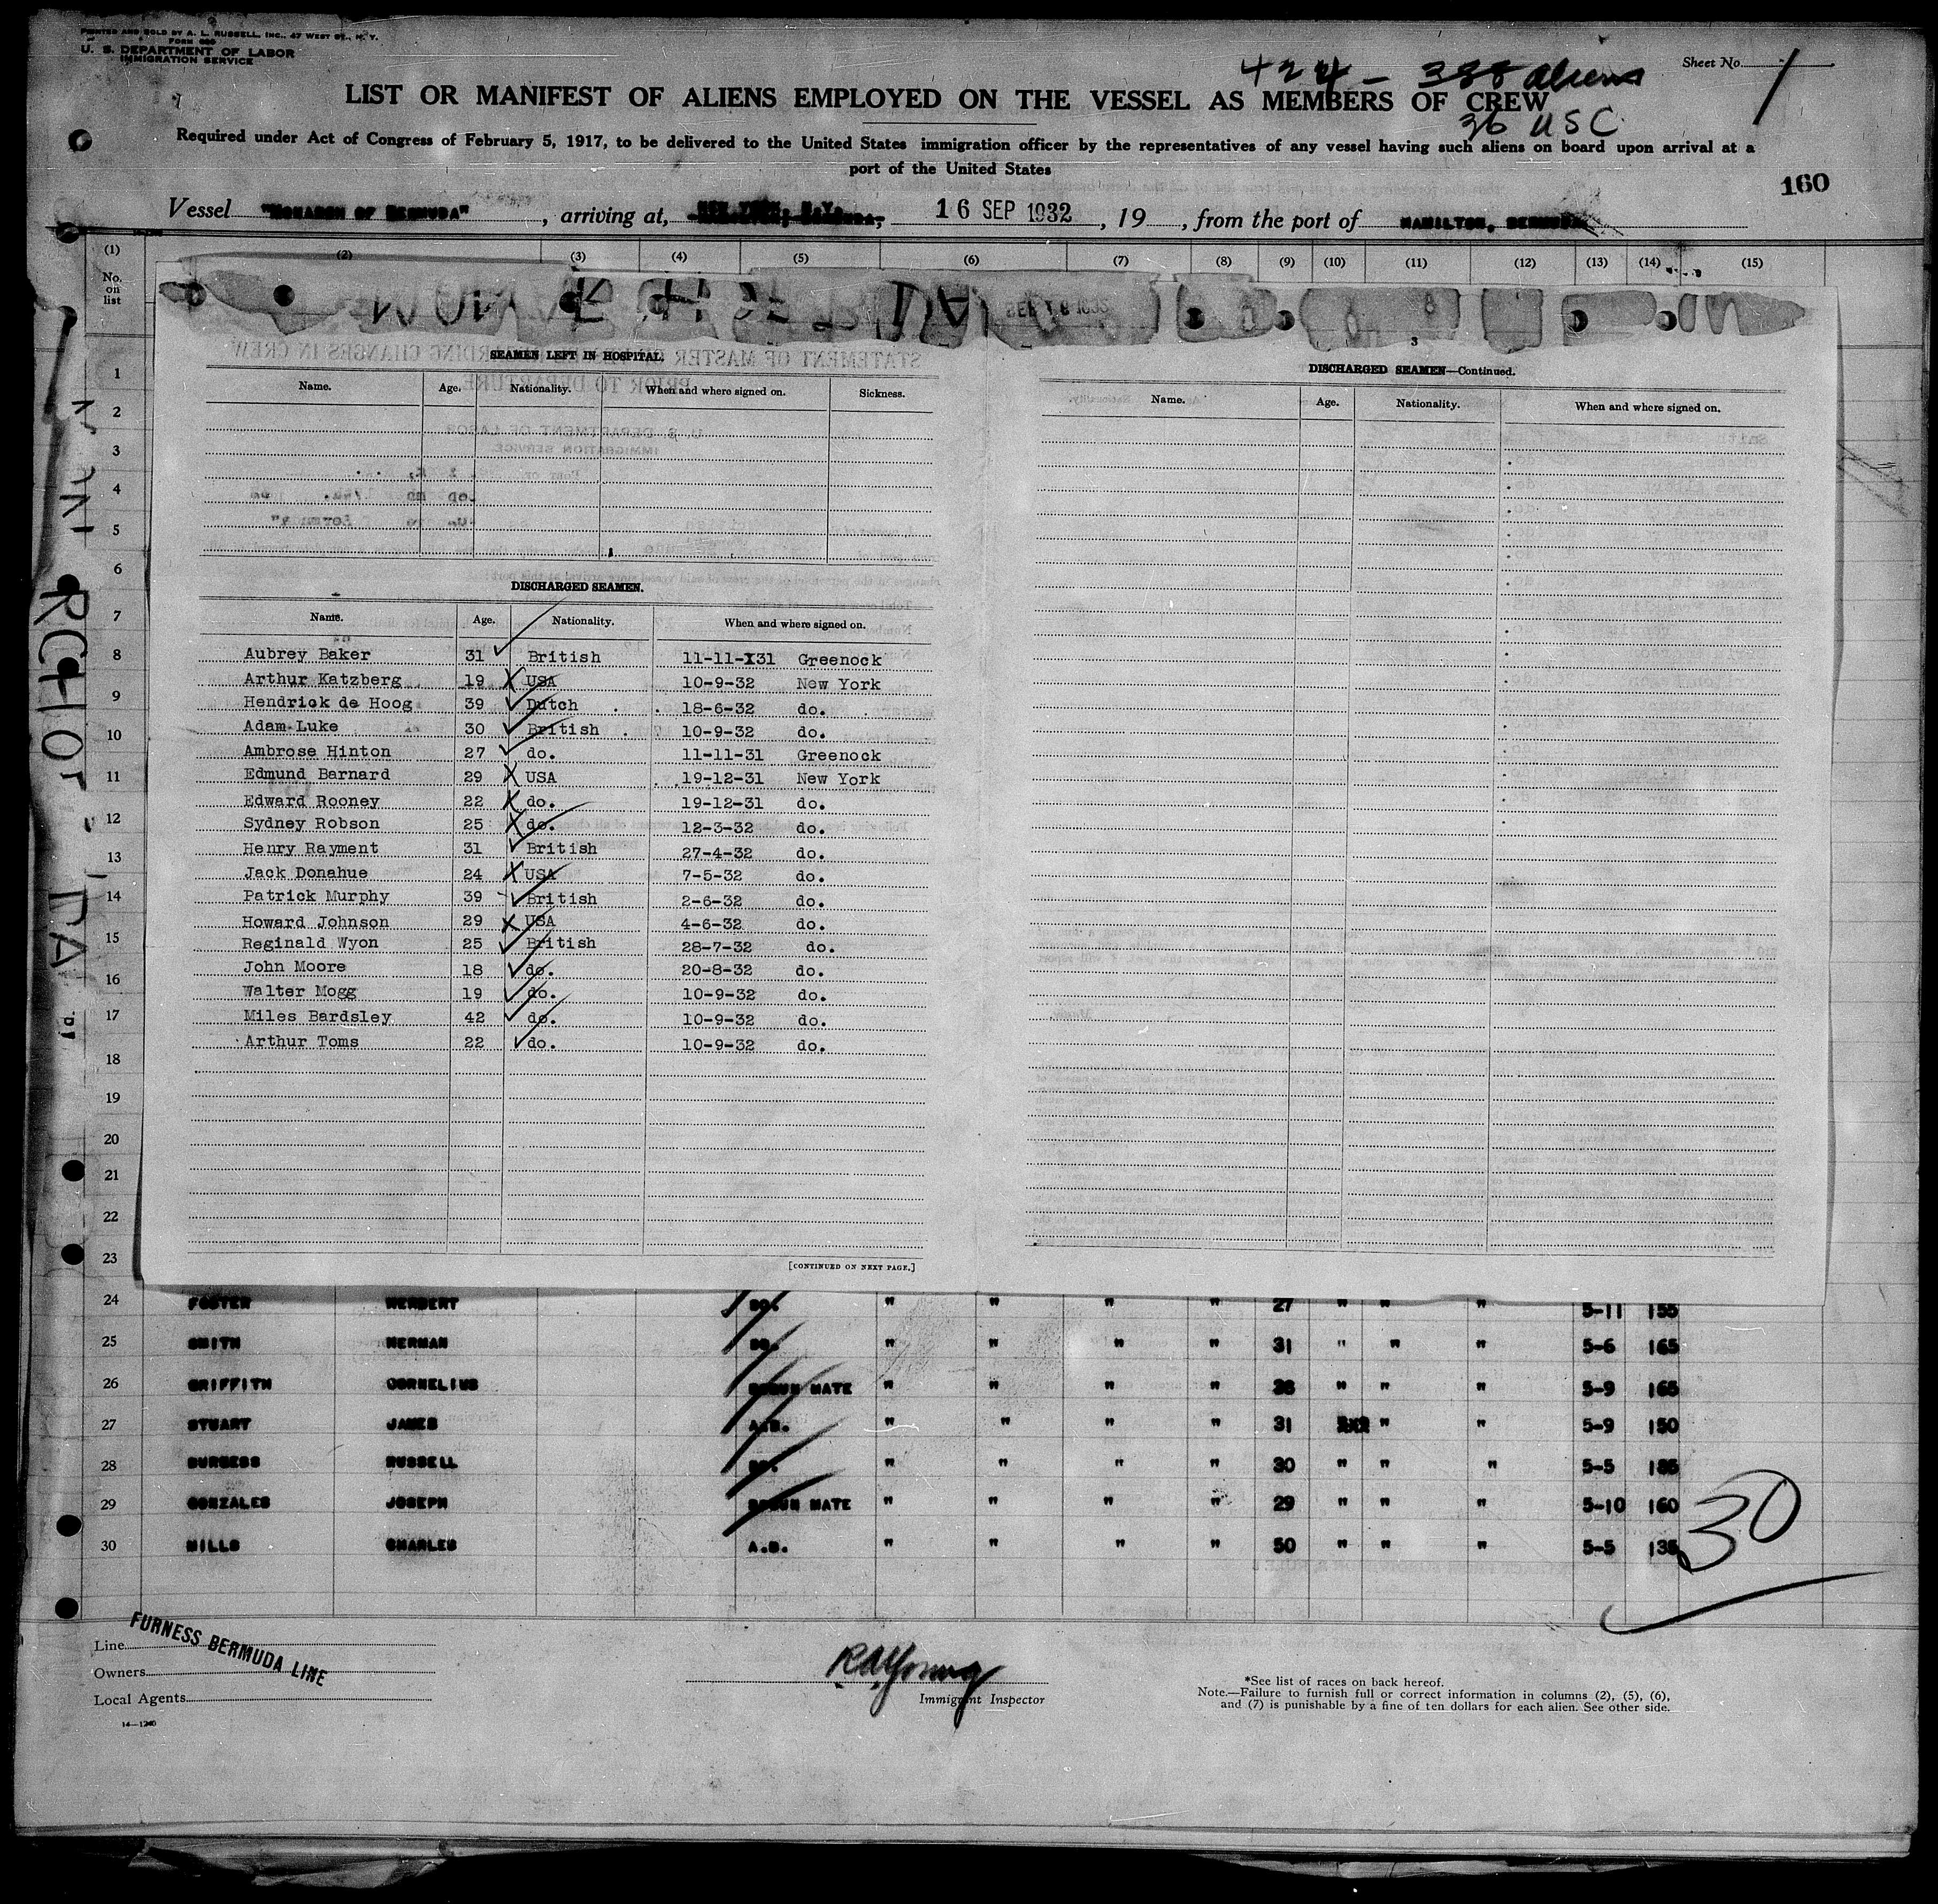 PRINTED AND SOLD BY A. L. RUSSELL, INC., 47 WEST ST., N. Y.
U. S. DEPARTMENT OF LABOR
IMMIGRATION SERVICE
Sheet No. 1
424 - 388 aliens
36 USC
LIST OR MANIFEST OF ALIENS EMPLOYED ON THE VESSEL AS MEMBERS OF CREW
Required under Act of Congress of February 5, 1917, to be delivered to the United States immigration officer by the representatives of any vessel having such aliens on board upon arrival at a
port of the United States
160
Vessel "MONARCH OF BERMUDA", arriving at, NEW YORK, N.Y. 16 SEP 1932, 19, from the port of HAMILTON, BERMUDA
(1) (2) (3) (4) (5) (6) (7) (8) (9) (10) (11) (12) (13) (14) (15)
No. on list
3
SEAMEN LEFT IN HOSPITAL.
Name. Age. Nationality. When and where signed on. Sickness.
DISCHARGED SEAMEN.
Name. Age. Nationality. When and where signed on.
Aubrey Baker 31 British 11-11-31 Greenock
Arthur Katzberg 19 USA 10-9-32 New York
Hendrick de Hoog 39 Dutch 18-6-32 do.
Adam Luke 30 British 10-9-32 do.
Ambrose Hinton 27 do. 11-11-31 Greenock
Edmund Barnard 29 USA 19-12-31 New York
Edward Rooney 22 do. 19-12-31 do.
Sydney Robson 25 do. 12-3-32 do.
Henry Rayment 31 British 27-4-32 do.
Jack Donahue 24 USA 7-5-32 do.
Patrick Murphy 39 British 2-6-32 do.
Howard Johnson 29 USA 4-6-32 do.
Reginald Wyon 25 British 28-7-32 do.
John Moore 18 do. 20-8-32 do.
Walter Mogg 19 do. 10-9-32 do.
Miles Bardsley 42 do. 10-9-32 do.
Arthur Toms 22 do. 10-9-32 do.
[CONTINUED ON NEXT PAGE.]
DISCHARGED SEAMEN—Continued.
Name. Age. Nationality. When and where signed on.
1
2
3
4
5
6
7
8
9
10
11
12
13
14
15
16
17
18
19
20
21
22
23
24 FOSTER HERBERT DO. " " " " 27 " " " 5-11 155
25 SMITH HERMAN DO. " " " " 31 " " " 5-6 165
26 GRIFFITH CORNELIUS BOSUN MATE " " " " 38 " " " 5-9 165
27 STUART JAMES A.B. " " " " 31 " " 5-9 150
28 BURGESS RUSSELL DO. " " " " 30 " " " 5-5 185
29 GONZALES JOSEPH BOSUN MATE " " " " 29 " " " 5-10 160
30 MILLS CHARLES A.B. " " " " 50 " " " 5-5 135
30
Line FURNESS BERMUDA LINE
Owners
Local Agents
14—1240
R A Young
Immigrant Inspector
*See list of races on back hereof.
Note.—Failure to furnish full or correct information in columns (2), (5), (6),
and (7) is punishable by a fine of ten dollars for each alien. See other side.